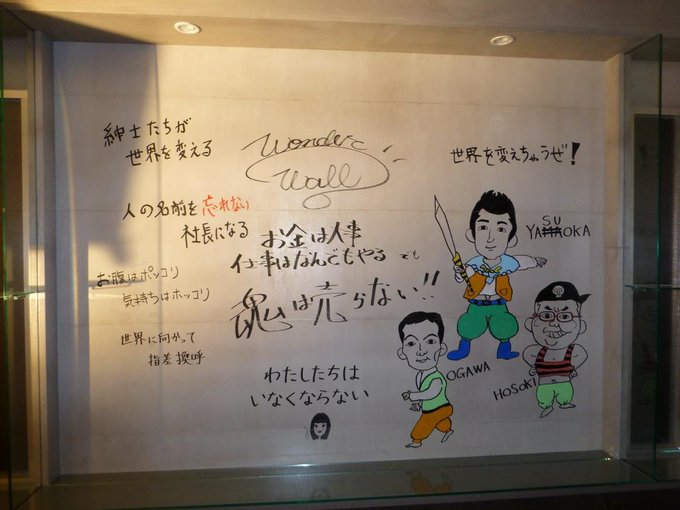 紳士たちが
世界を変える
Wonder
Wall
世界を変えちゃうぜ!
人の名前を忘れない
社長になる
お金は人事
仕事はなんでもやる でも
魂は売らない!!
お腹はポッコリ
気持ちはホッコリ
世界に向かって
指差換呼
わたしたちは
いなくならない
SU
YAMAOKA
OGAWA
HOSOKI